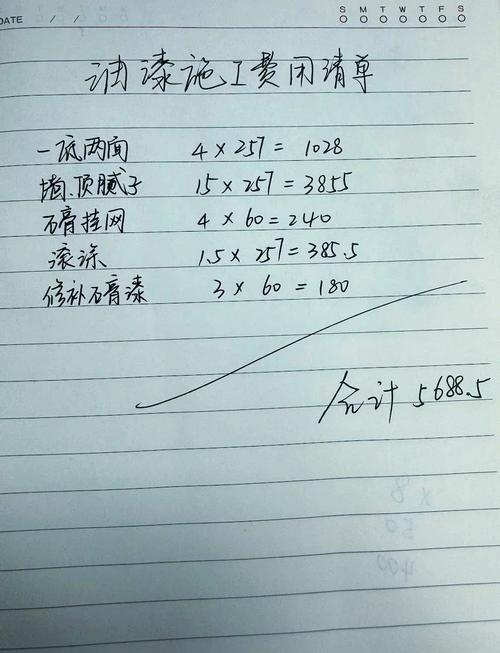 DATE / /
S M T W T F S
油漆施工费用清单
一底两面 4×257= 1028
墙.顶腻子 15×257=3855
石膏挂网 4×60=240
滚涂 1.5×257=385.5
修补石膏漆 3×60=180
合计 5688.5
× 8
50
400